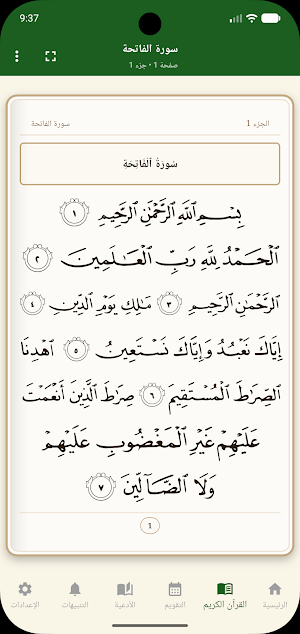 9:37
سورة الفاتحة
صفحة 1 • جزء 1
الجزء 1
سورة الفاتحة
سُورَةُ ٱلْفَاتِحَةِ
بِسْمِ ٱللَّهِ ٱلرَّحْمَٰنِ ٱلرَّحِيمِ ١
ٱلْحَمْدُ لِلَّهِ رَبِّ ٱلْعَٰلَمِينَ ٢
ٱلرَّحْمَٰنِ ٱلرَّحِيمِ ٣ مَٰلِكِ يَوْمِ ٱلدِّينِ ٤
إِيَّاكَ نَعْبُدُ وَإِيَّاكَ نَسْتَعِينُ ٥ ٱهْدِنَا
ٱلصِّرَٰطَ ٱلْمُسْتَقِيمَ ٦ صِرَٰطَ ٱلَّذِينَ أَنْعَمْتَ
عَلَيْهِمْ غَيْرِ ٱلْمَغْضُوبِ عَلَيْهِمْ
وَلَا ٱلضَّآلِّينَ ٧
1
الرئيسية
القرآن الكريم
التقويم
الأدعية
التنبيهات
الإعدادات